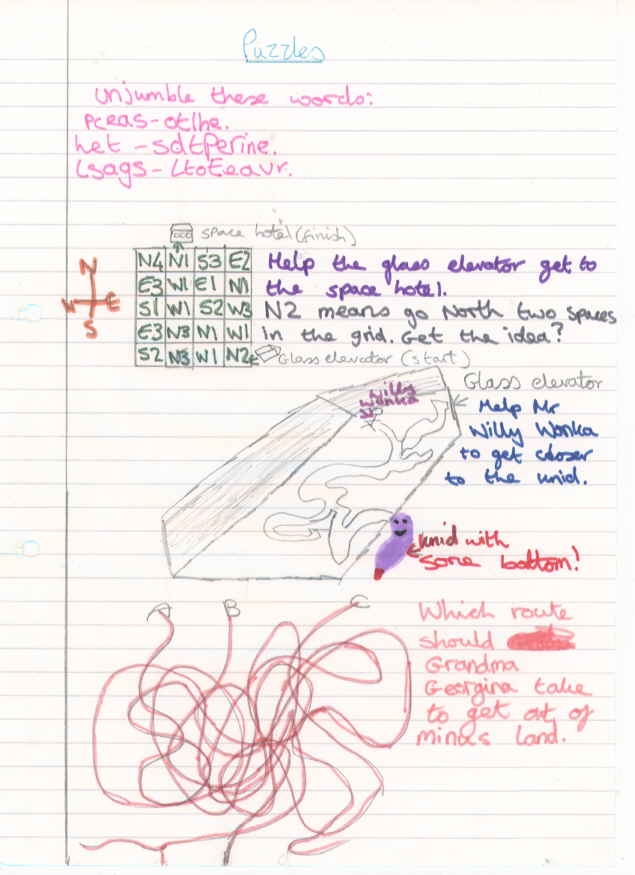 Puzzles
Unjumble these words:
pceas-otlhe.
het-sdtperine.
lsags-ltoeeavr.
space hotel (finish)
N4 N1 S3 E2
E3 W1 E1 N1
S1 W1 S2 W3
E3 N3 N1 W1
S2 N3 W1 N2
N
W E
S
Help the glass elevator get to
the space hotel.
N2 means go North two spaces
in the grid. Get the idea?
Glass elevator (start)
Willy
Wonka
Glass elevator
Help Mr
Willy Wonka
to get closer
to the knid.
knid with
sore bottom!
A B C
Which route
should
Grandma
Georgina take
to get out of
minus land.